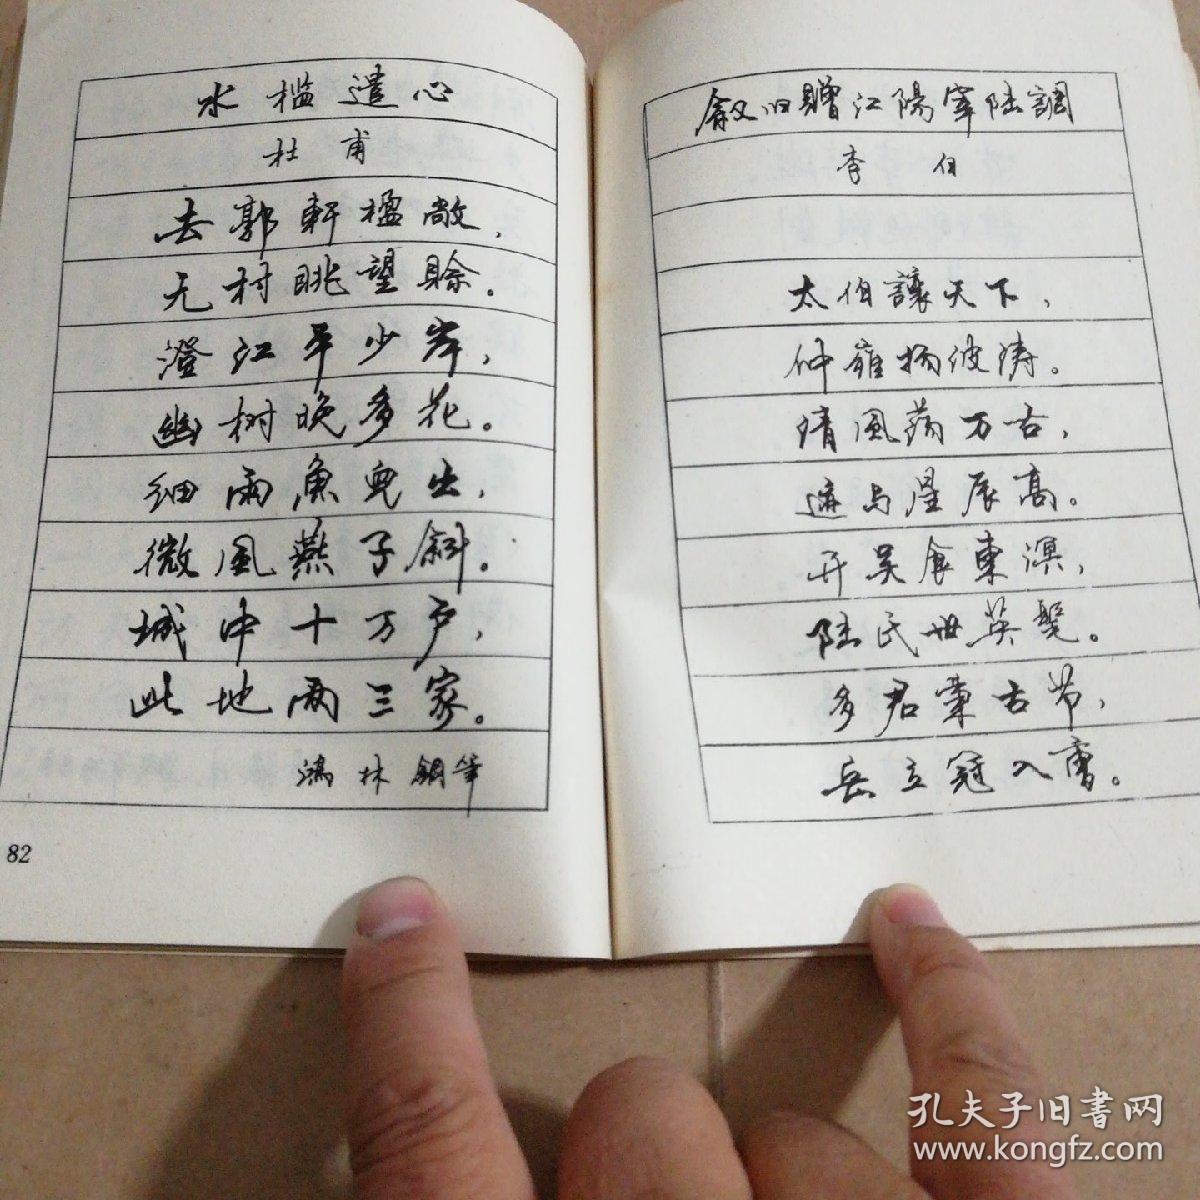 水槛遣心
杜甫
去郭軒楹敞，
无村眺望賒。
澄江平少岸，
幽树晚多花。
细雨魚兒出，
微風燕子斜。
城中十万户，
此地两三家。
鴻林鋼筆
82
叙旧贈江陽宰陆調
李白
太伯讓天下，
仲雍揚波涛。
清風荡万古，
迹与星辰高。
开吴食東溟，
陆氏世英髦。
多君秉古节，
岳立冠人曹。
孔夫子旧書网
www.kongfz.com